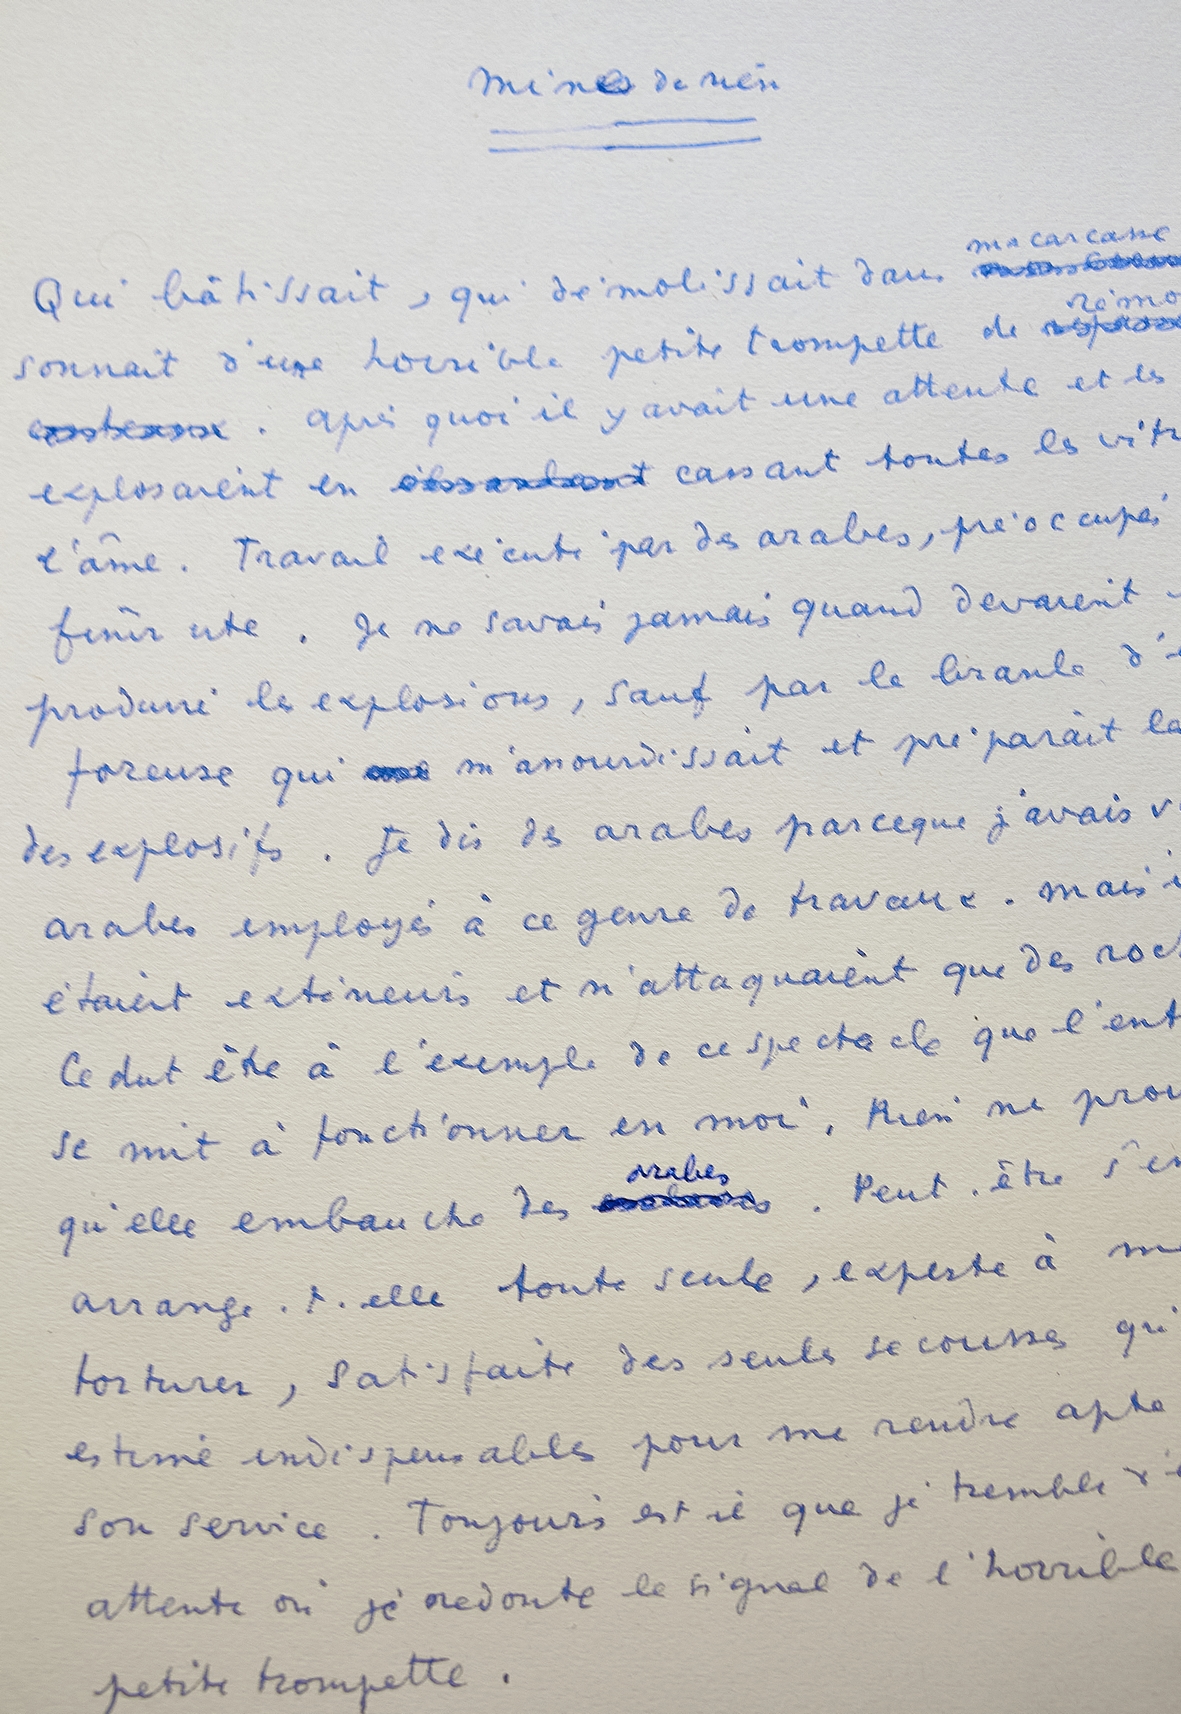 Mines de rien
ma carcasse
Qui bâtissait, qui démolissait dans
rémo
sonnait d'une horrible petite trompette de
. Après quoi il y avait une attente et les
explosaient en cassant toutes les vitr
l'âme. Travail exécuté par des arabes, préoccupés
finir vite. Je ne savais jamais quand devaient
produire les explosions, sauf par le branle d'
foreuse qui m'anourdissait et préparait la
des explosifs. Je dis des arabes parceque j'avais v
arabes employés à ce genre de travaux. Mais i
étaient extérieurs et n'attaquaient que des roc
Ce dut être à l'exemple de ce spectacle que l'ent
se mit à fonctionner en moi. Rien ne prou
arabes
qu'elle embauche des . Peut.être s'en
arrange.t.elle toute seule, experte à me
torturer, satisfaite des seules secousses qu'
estimé indispensables pour me rendre apte
son service. Toujours est il que je tremble
attente où je redoute le signal de l'horrible
petite trompette.